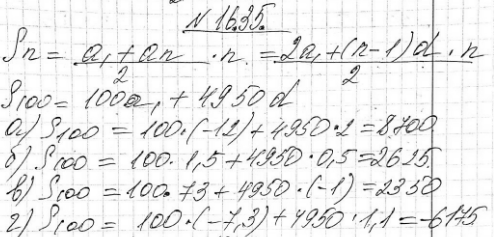 № 16.35.
Sn = a₁ + an / 2 · n = 2a₁ + (n-1)d / 2 · n
S₁₀₀ = 100a₁ + 4950d
а) S₁₀₀ = 100·(-12) + 4950·2 = 8700
б) S₁₀₀ = 100·1,5 + 4950·0,5 = 2625
в) S₁₀₀ = 100·73 + 4950·(-1) = 2350
г) S₁₀₀ = 100·(-7,3) + 4950·1,1 = -6175